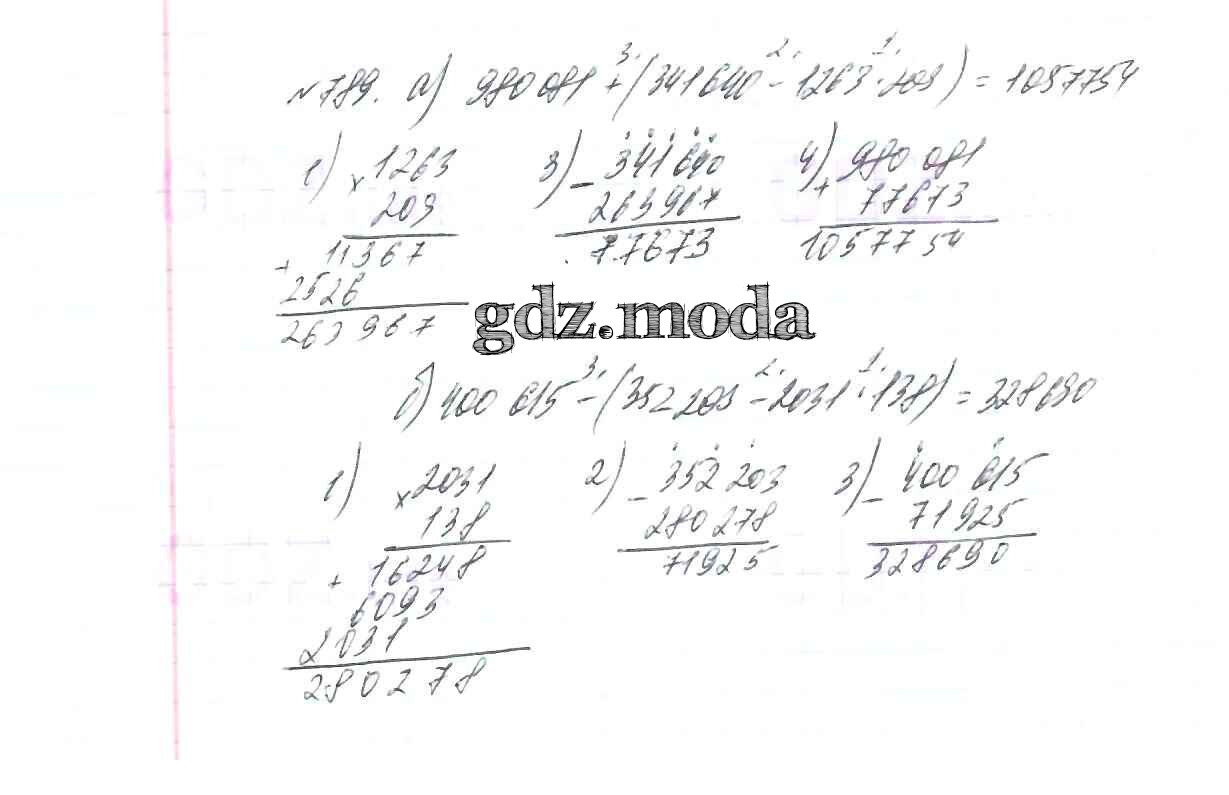 №789. а) 980 081 + (341640 - 1263 · 209) = 1057754
3. 2. 1.
1) × 1263
209
+ 11367
2526
263967
3) - 341 640
263967
77673
4) + 980 081
77673
1057754
gdz.moda
б) 400 615 - (352 203 - 2031 · 138) = 328690
3. 2. 1.
1) × 2031
138
+ 16248
6093
2031
280278
2) - 352 203
280 278
71925
3) - 400 615
71925
328690